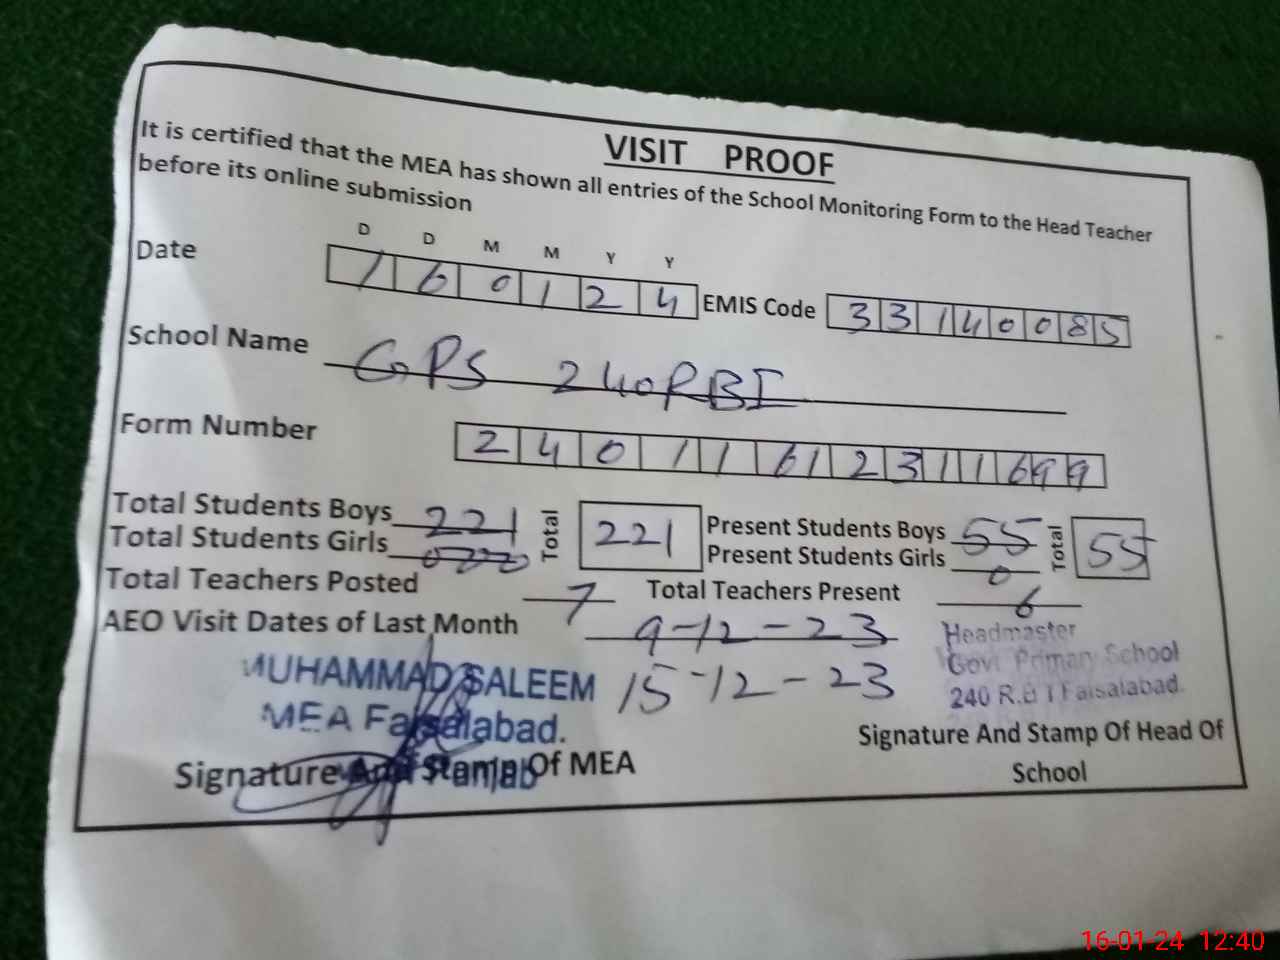 VISIT PROOF
It is certified that the MEA has shown all entries of the School Monitoring Form to the Head Teacher
before its online submission
D D M M Y Y
Date 1 6 0 1 2 4 EMIS Code 3 3 1 4 0 0 8 5
School Name GPS 240RBI
Form Number 2 4 0 1 1 6 1 2 3 1 1 6 9 9
Total Students Boys 221 Total 221 Present Students Boys 55 Total 55
Total Students Girls 000 Present Students Girls 0
Total Teachers Posted 7 Total Teachers Present 6
AEO Visit Dates of Last Month 9-12-23
15-12-23
Headmaster
Govt Primary School
240 R.B I Faisalabad.
MUHAMMAD SALEEM
MEA Faisalabad.
Punjab
Signature And Stamp Of MEA
Signature And Stamp Of Head Of
School
16-01-24 12:40